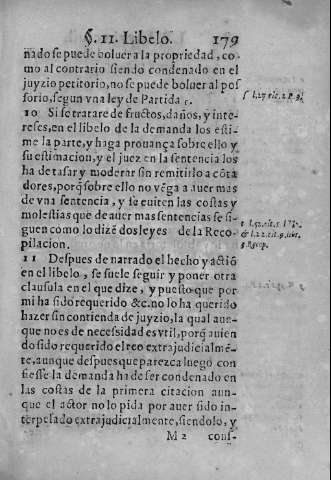 §. 11. Libelo. 179
nado se puede boluer a la propriedad, co-
mo al contrario siendo condenado en el
juyzio petitorio, no se puede boluer al pos
sessorio, segun vna ley de Partida
10 Si se tratare de fructos, daños, y inte-
reses, en el libelo de la demanda los esti-
me la parte, y haga prouança sobre ello y
su estimacion, y el juez en la sentencia los
ha de tasar y moderar sin remitirlo a cōta
dores, porq̄ sobre ello no vēga a auer mas
de vna sentencia, y se euiten las costas y
molestias que de auer mas sentencias se si-
guen como lo dizē dos leyes de la Reco-
pilacion.
11 Despues de narrado el hecho y actiō
en el libelo, se suele seguir y poner otra
clausula en el que dize, y puesto que por
mi ha sido requerido &c. no lo ha querido
hazer sin contienda de juyzio, la qual aun-
que no es de necessidad es vtil, porq̄ auien
do sido requerido el reo extrajudicialmē-
te, aunque despues que parezca luego con
fiesse la demanda ha de ser condenado en
las costas de la primera citacion aun-
que el actor no lo pida por auer sido in-
terpelado extrajudicialmente, siendolo, y
M 2 conf-